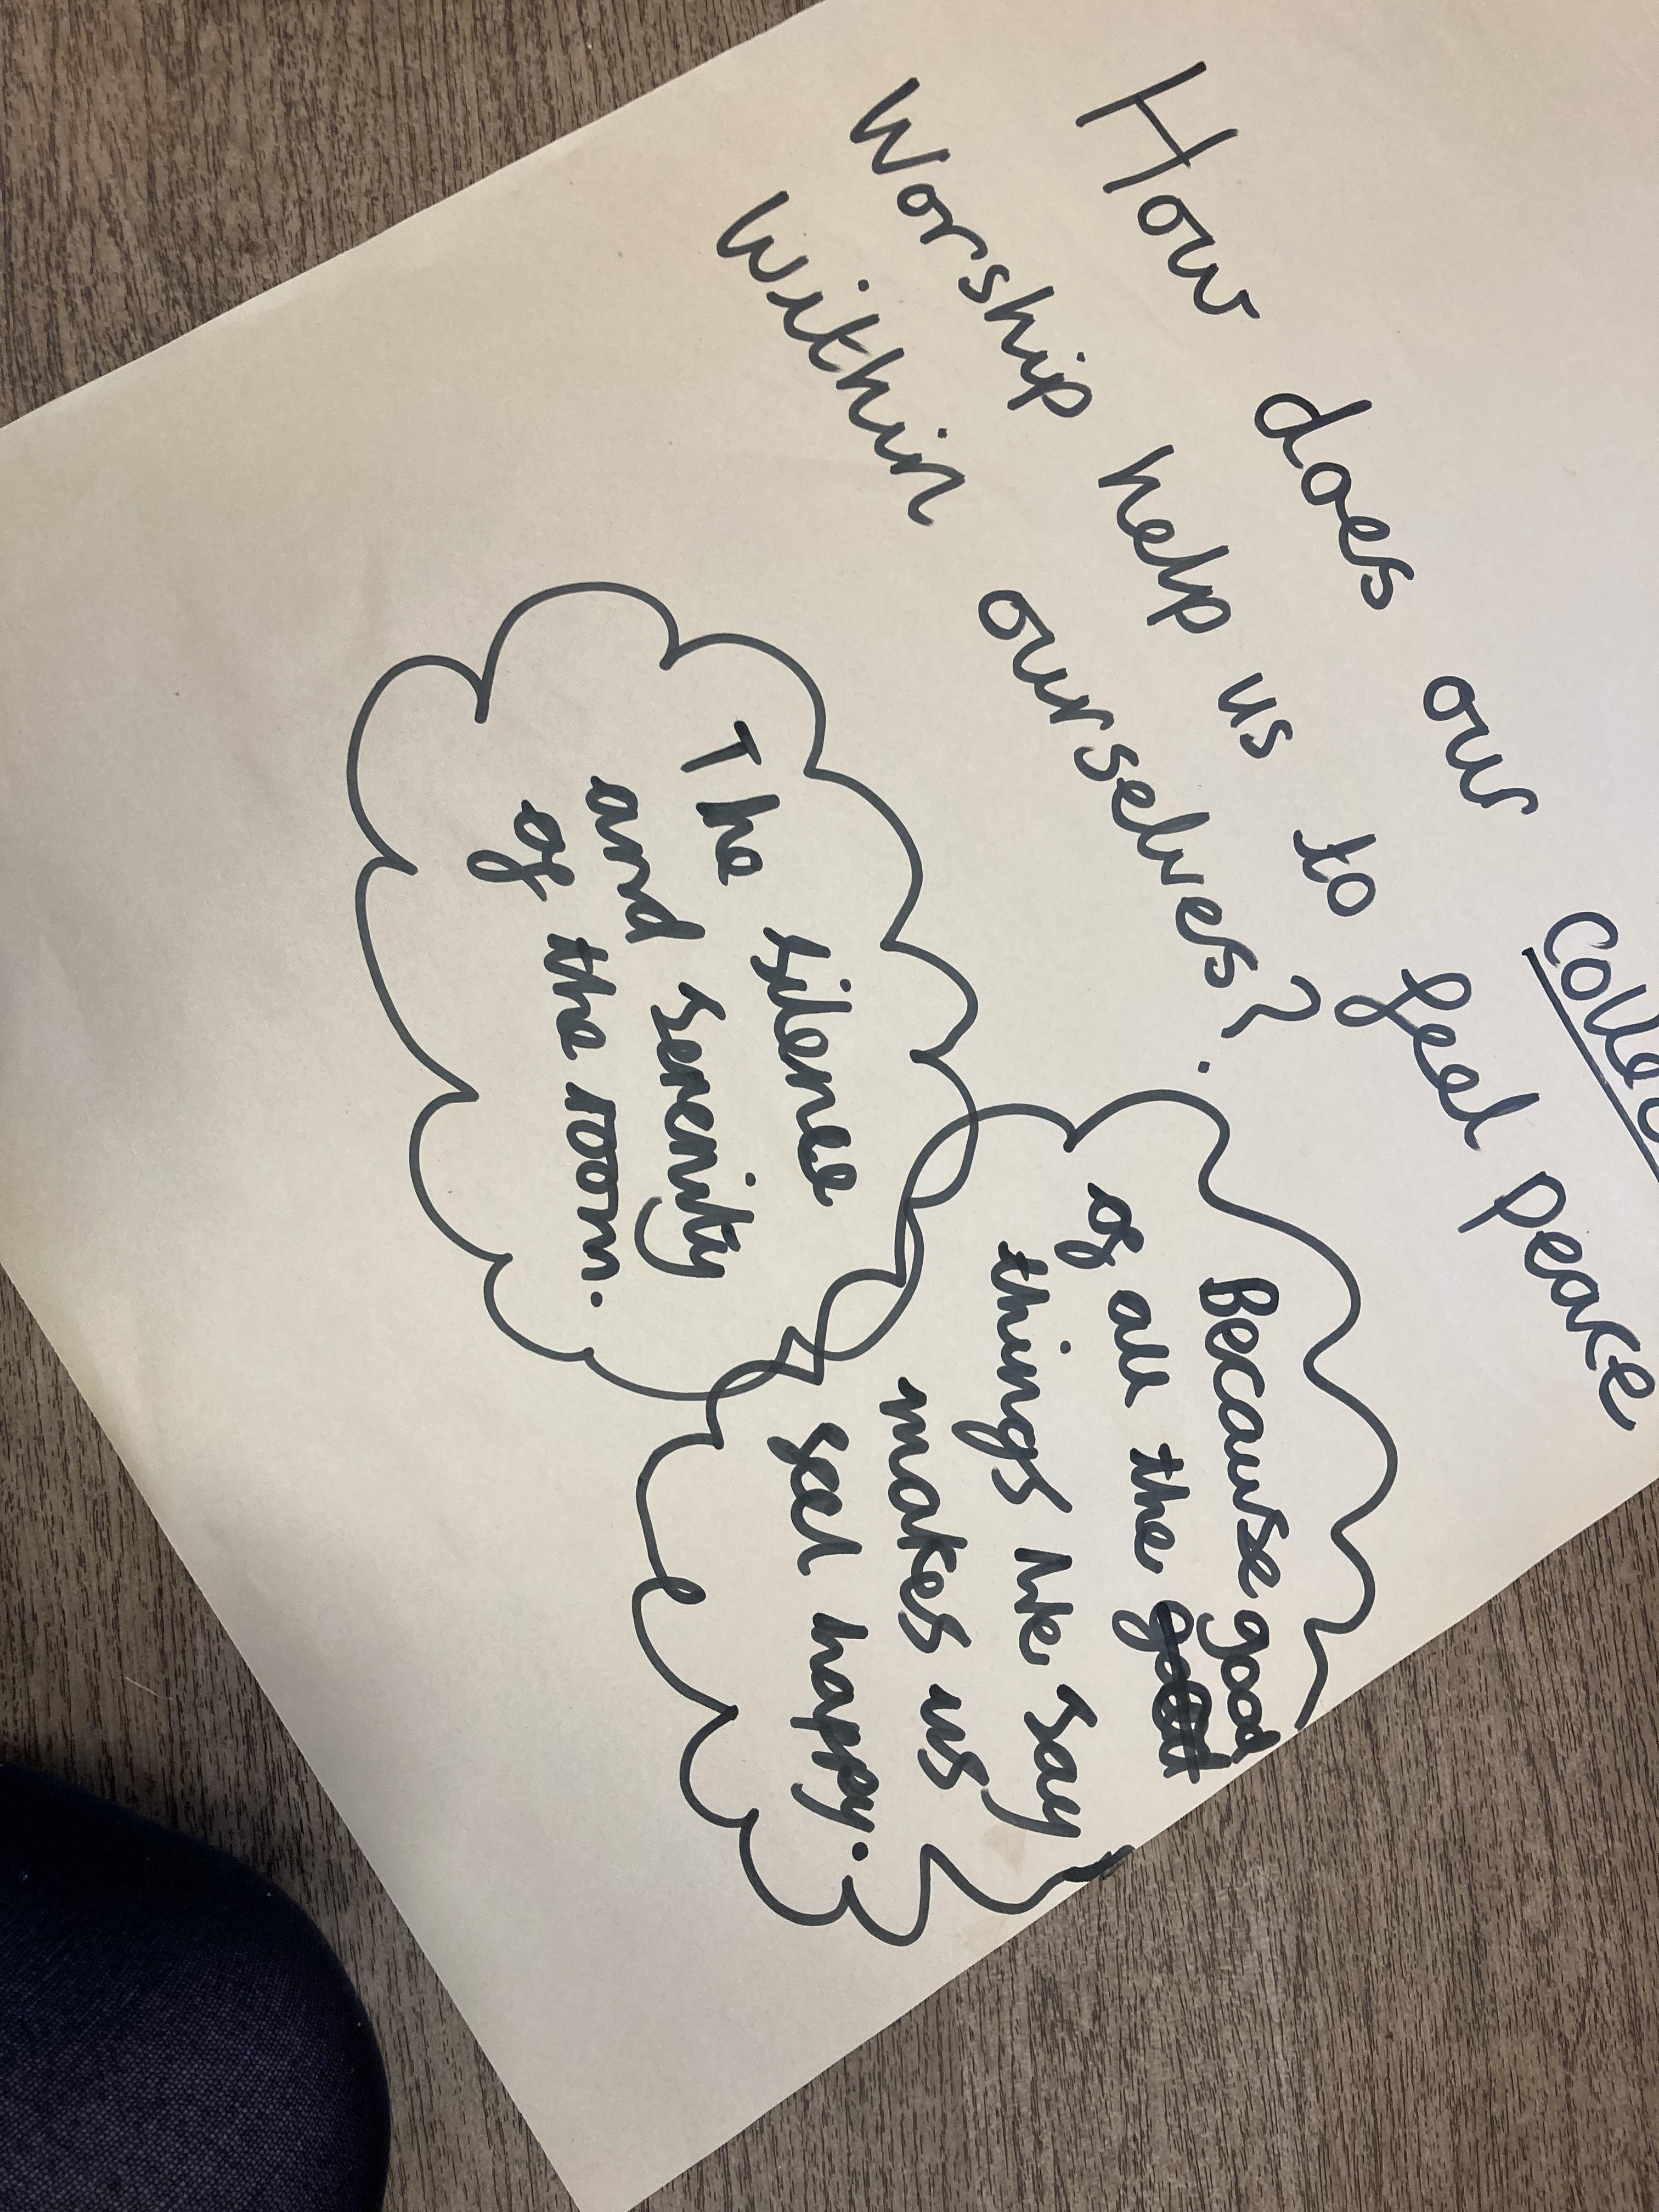 How does our
Worship help us to feel peace
Within ourselves?
The silence
and serenity
of the room.
Because good
of all the
things he say
makes us
feel happy.